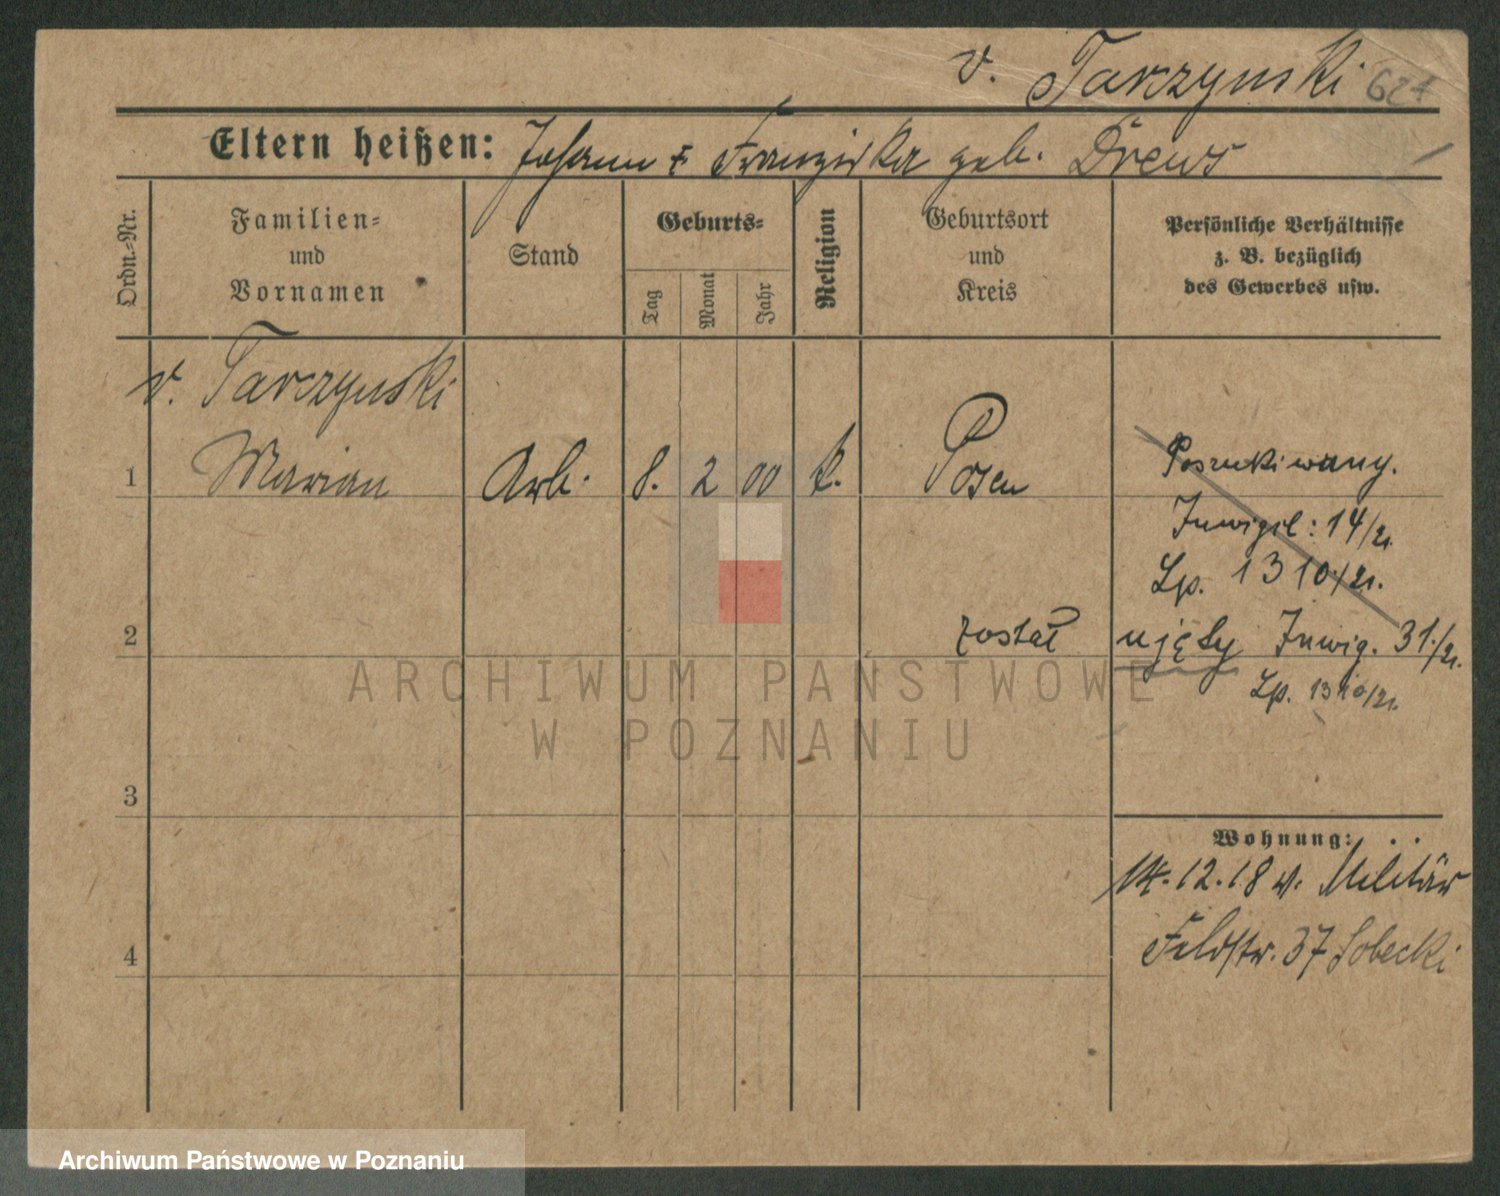 v. Tarzynski 627
Eltern heißen: Johann & Franziska geb. Drews
Ordn.-Nr.
Familien-
und
Vornamen
Stand
Geburts-
Tag
Monat
Jahr
Religion
Geburtsort
und
Kreis
Persönliche Verhältnisse
z. B. bezüglich
des Gewerbes usw.
v. Tarczynski
1 Marian Arb. 8. 2 00 k. Posen
Poszukiwany.
Inwigil: 14/21.
Lp. 1310/21.
2
został ujęty Inwig. 31./21.
Lp. 1310/21.
3
Wohnung:
14.12.18 v. Militär
Feldstr. 37 Sobecki
4
ARCHIWUM PAŃSTWOWE
W POZNANIU
Archiwum Państwowe w Poznaniu